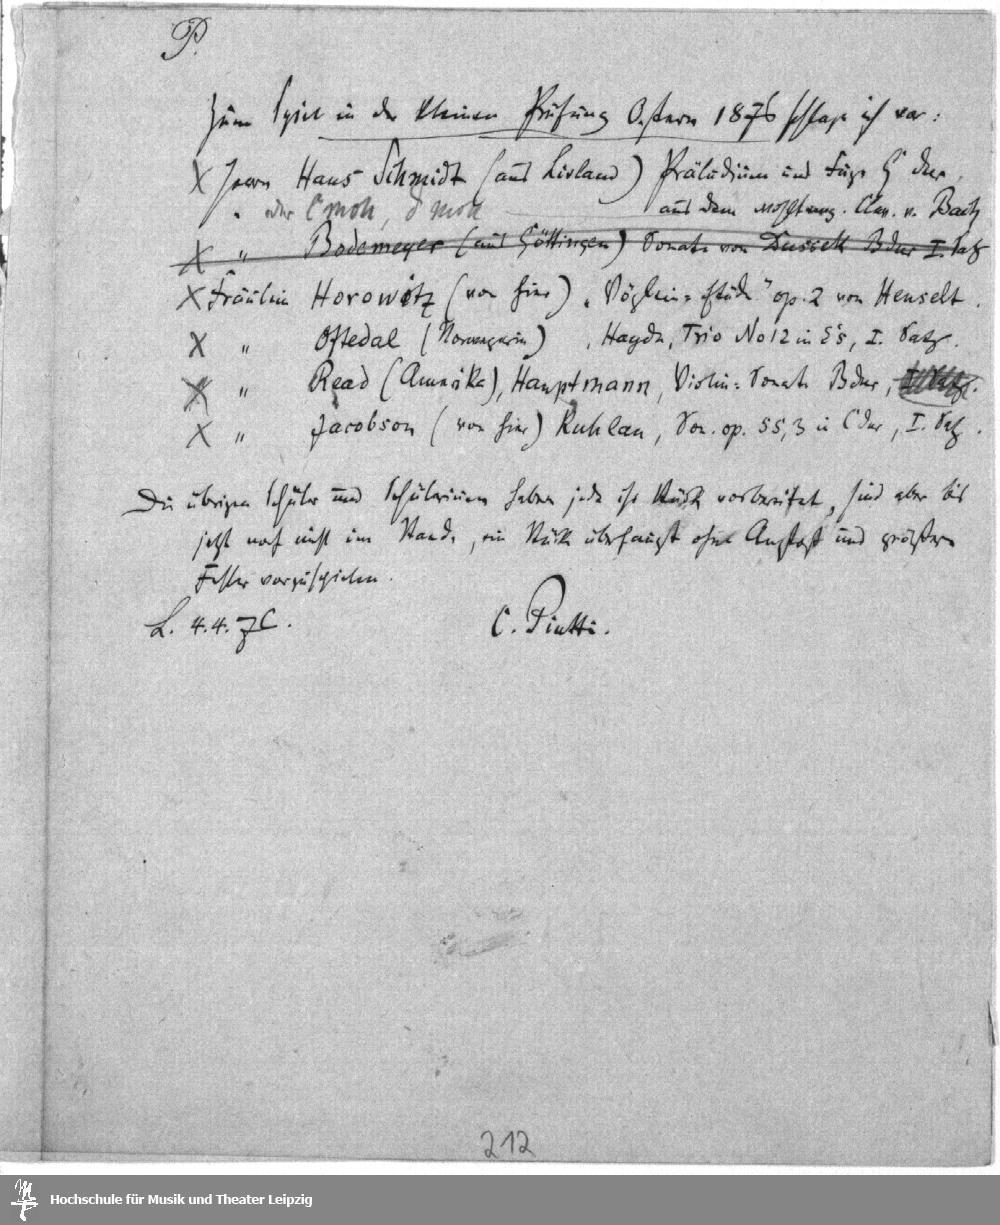 P.
Zum Spiel in der kleinen Prüfung Ostern 1876 schlage ich vor:
X Herrn Hans Schmidt (aus Livland) Präludium und Fuge G dur,
" oder C moll, d moll aus dem wohltemp. Clav. v. Bach
X " Bodemeyer (aus Göttingen) Sonate von Dussek B dur I. Satz
X Fräulein Horowitz (von hier) „Vöglein-Etüde" op. 2 von Henselt.
X " Oftedal (Norwegerin), Haydn, Trio No 12 in Es, I. Satz.
X " Read (Amerika), Hauptmann, Violin-Sonate B dur, I. Satz.
X " Jacobson (von hier) Kuhlau, Son. op. 55, 3 in C dur, I. Satz.
Die übrigen Schüler und Schülerinnen haben jede ihr Stück vorbereitet, sind aber bis
jetzt noch nicht im Stande, ein Stück überhaupt ohne Anstoß und größere
Fehler vorzuspielen.
L. 4.4.76.
C. Piutti.
212
Hochschule für Musik und Theater Leipzig